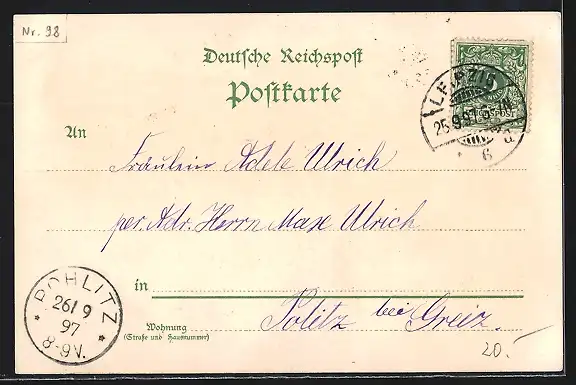 Nr. 98
Deutsche Reichspost
Postkarte
LEIPZIG
25.9.97.5-
6
d.
REICHSPOST
An
Fräulein Adele Ulrich
per. Adr. Herrn Max Ulrich
in
Politz bei Greiz.
Wohnung
(Straße und Hausnummer)
POHLITZ
26/9
97
8-9V.
20.-